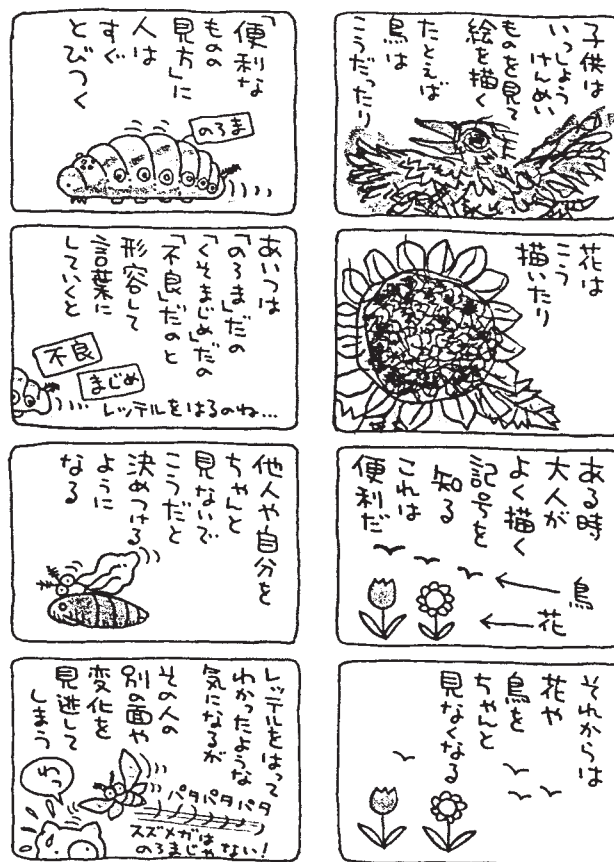 子供は
いっしょう
けんめい
ものを見て
絵を描く
たとえば
鳥は
こうだったり
花は
こう
描いたり
ある時
大人が
よく描く
記号を
知る
これは
便利だ
鳥
花
それからは
花や
鳥を
ちゃんと
見なくなる
「便利な
ものの
見方」に
人は
すぐ
とびつく
のろま
あいつは
「のろま」だの
「くそまじめ」だの
「不良」だのと
形容して
言葉に
していくと
不良
まじめ
レッテルをはるのね…
他人や自分を
ちゃんと
見ないで
こうだと
決めつける
ように
なる
レッテルをはって
わかったような
気になるが
その人の
別の面や
変化を
見逃して
しまう
わっ
パタパタパタ
スズメガは
のろまじゃない!